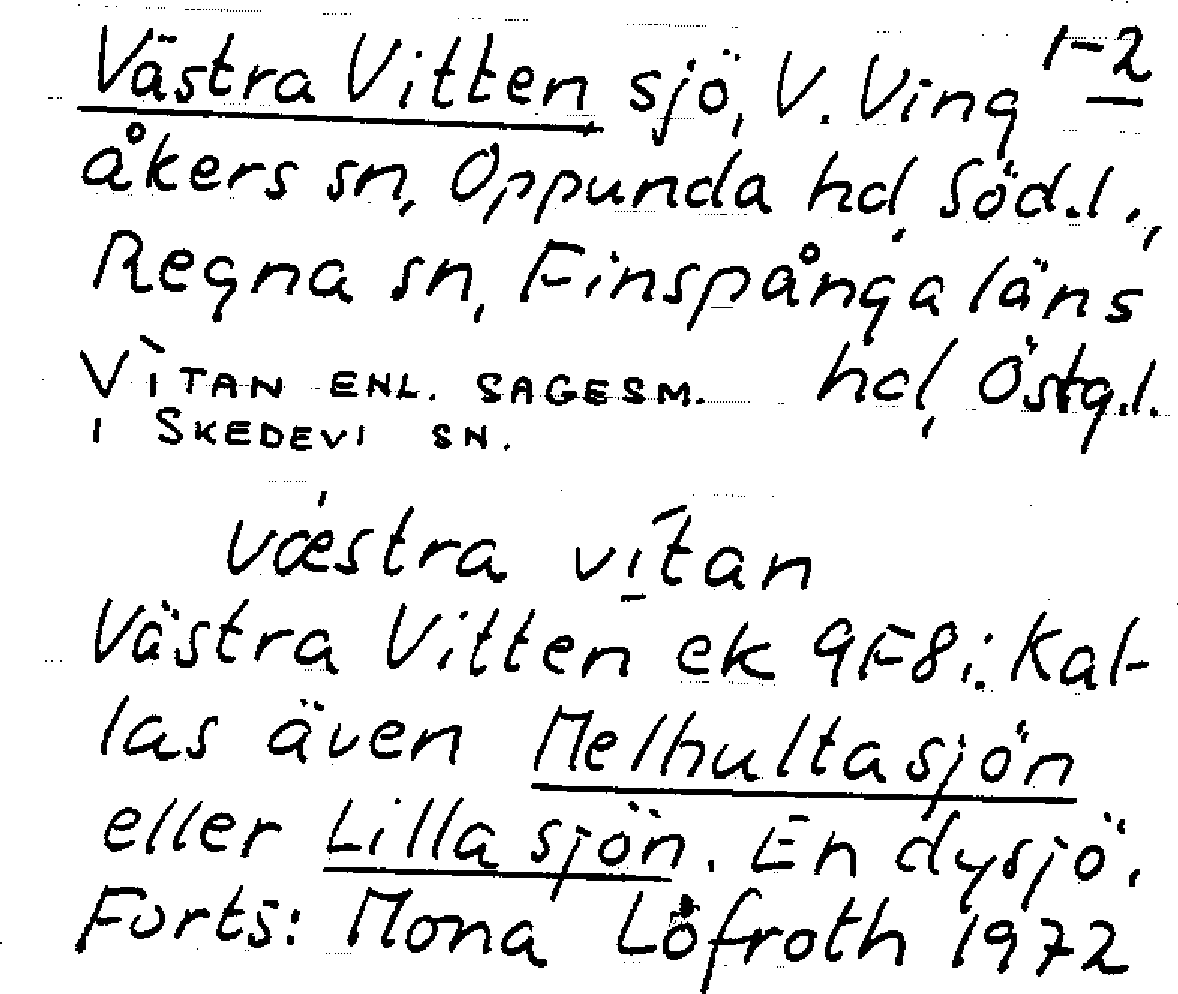 Västra Vitten sjö, V. Ving 1-2
åkers sn, Oppunda hd, Söd.l.,
Regna sn, Finspånga läns
hd, Östg.l.
Vìtan enl. sagesm.
i Skedevi sn.
vǽstra vi̱tan
Västra Vitten ek 9F8i. Kal-
las även Melhultasjön
eller Lilla sjön. En dysjö.
Forts: Mona Löfroth 1972